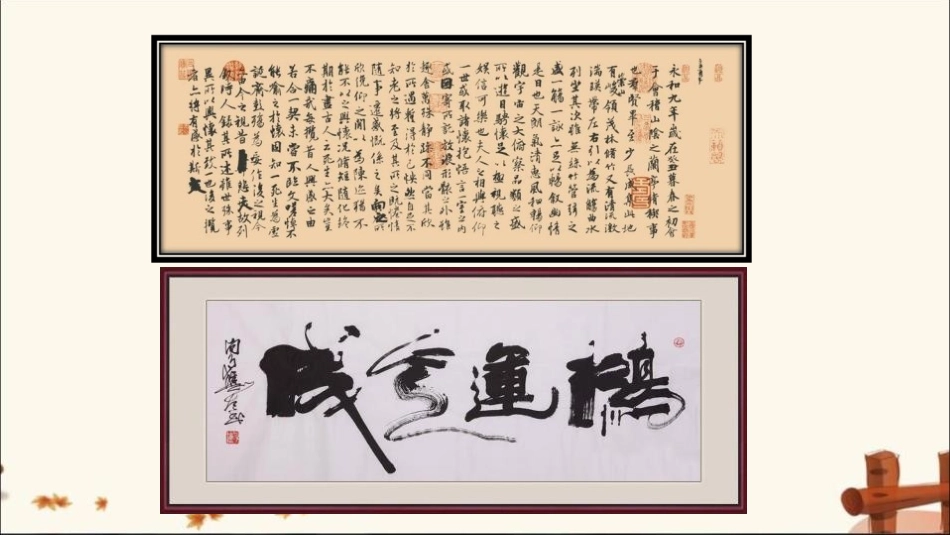 永和九年歲在癸丑暮春之初會
于會稽山陰之蘭亭脩禊事
也羣賢畢至少長咸集此地
有崇山峻領茂林脩竹又有清流激
湍暎帶左右引以為流觴曲水
列坐其次雖無絲竹管弦之
盛一觴一詠亦足以暢敘幽情
是日也天朗氣清惠風和暢仰
觀宇宙之大俯察品類之盛
所以遊目騁懷足以極視聽之
娛信可樂也夫人之相與俯仰
一世或取諸懷抱悟言一室之內
或因寄所託放浪形骸之外雖
趣舍萬殊靜躁不同當其欣
於所遇暫得於己怏然自足不
知老之將至及其所之既惓情
隨事遷感慨係之矣向之所
欣俛仰之間以為陳迹猶不
能不以之興懷況脩短隨化終
期於盡古人云死生亦大矣豈
不痛哉每攬昔人興感之由
若合一契未嘗不臨文嗟悼不
能喻之於懷固知一死生為虛
誕齊彭殤為妄作後之視今
亦由今之視昔悲夫故列
敘時人錄其所述雖世殊事
異所以興懷其致一也後之攬
者亦將有感於斯文
鴻運天成